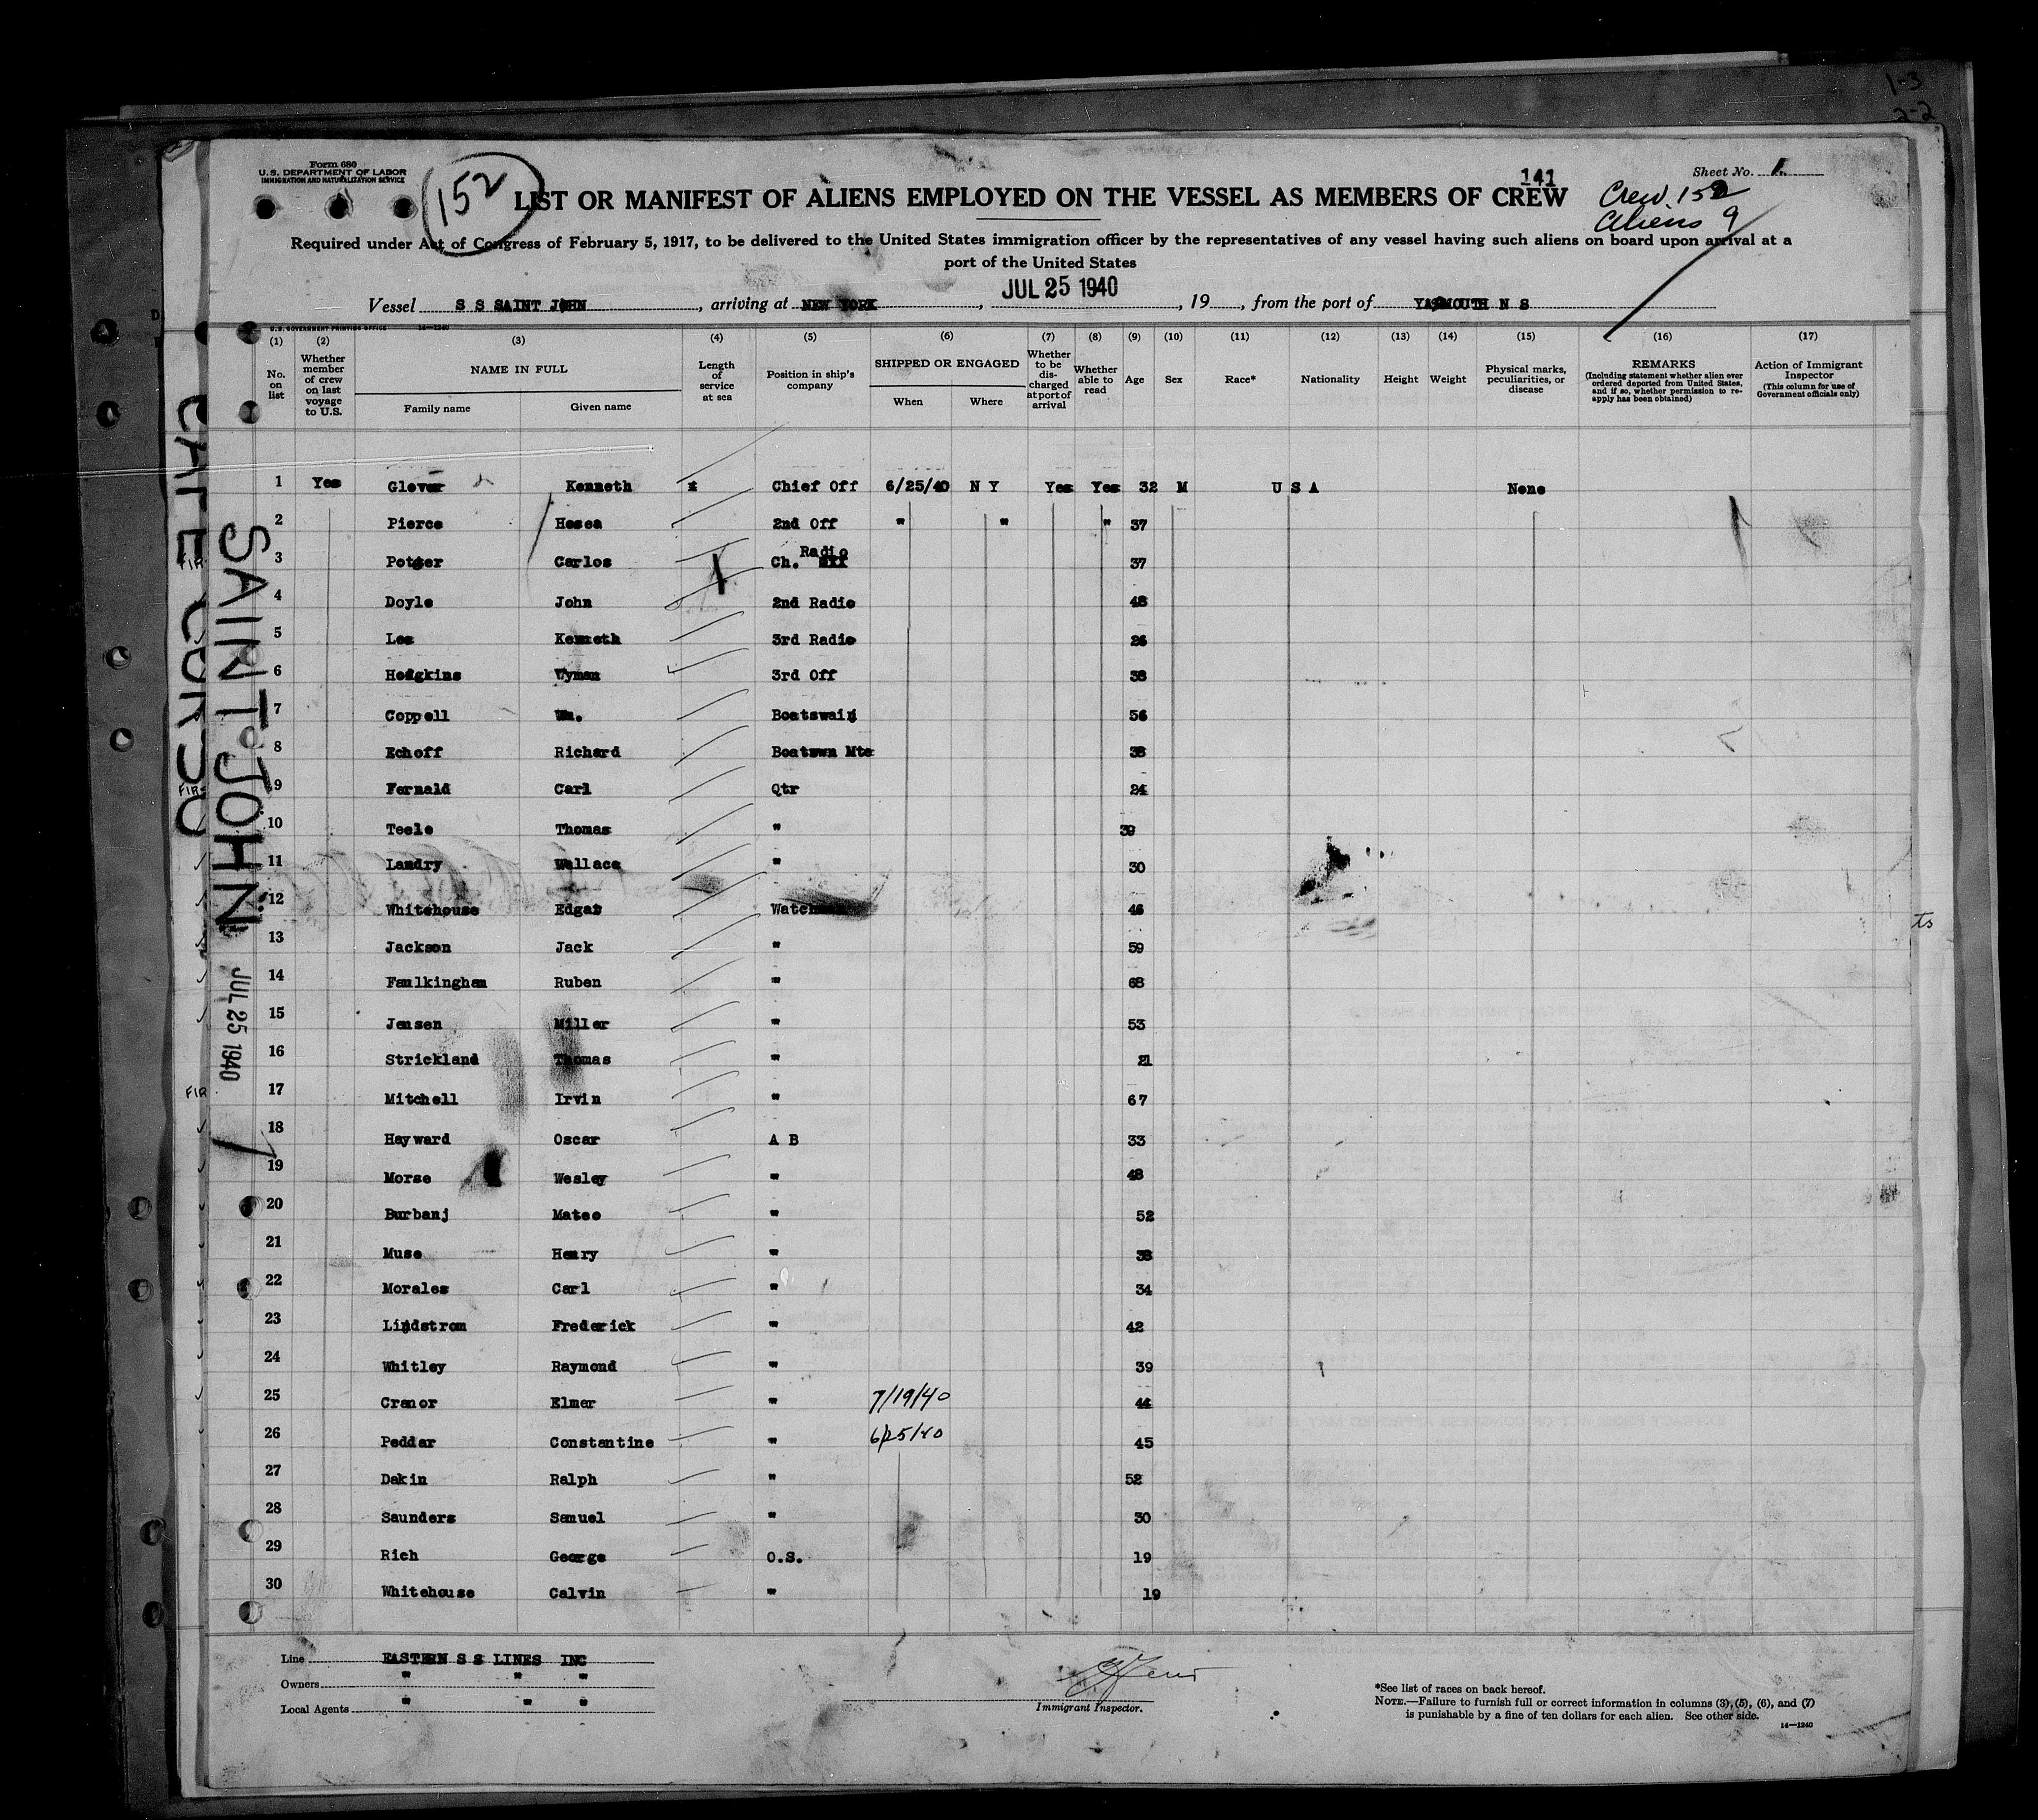 1-3
2-2
Form 680
U.S. DEPARTMENT OF LABOR
IMMIGRATION AND NATURALIZATION SERVICE
152
Sheet No. 1.
141
LIST OR MANIFEST OF ALIENS EMPLOYED ON THE VESSEL AS MEMBERS OF CREW
Crew 152
Aliens 9
Required under Act of Congress of February 5, 1917, to be delivered to the United States immigration officer by the representatives of any vessel having such aliens on board upon arrival at a
port of the United States
Vessel S S SAINT JOHN, arriving at NEW YORK, JUL 25 1940, 19, from the port of YARMOUTH N S
U.S. GOVERNMENT PRINTING OFFICE 14—1240
(1) No. on list
(2) Whether member of crew on last voyage to U.S.
(3) NAME IN FULL
Family name
Given name
(4) Length of service at sea
(5) Position in ship's company
(6) SHIPPED OR ENGAGED
When
Where
(7) Whether to be discharged at port of arrival
(8) Whether able to read
(9) Age
(10) Sex
(11) Race*
(12) Nationality
(13) Height
(14) Weight
(15) Physical marks, peculiarities, or disease
(16) REMARKS (Including statement whether alien ever ordered deported from United States, and if so, whether permission to reapply has been obtained)
(17) Action of Immigrant Inspector (This column for use of Government officials only)
1 Yes Glover Kenneth Chief Off 6/25/40 N Y Yes Yes 32 M U S A None
2 Pierce Hosea 2nd Off " " " 37
3 Potter Carlos Ch. Radio 37
4 Doyle John 2nd Radio 48
5 Lee Kenneth 3rd Radio 26
6 Hodgkins Wyman 3rd Off 38
7 Coppell Wm. Boatswain 56
8 Echoff Richard Boatswn Mte 38
9 Fernald Carl Qtr 24
10 Teele Thomas " 39
11 Landry Wallace " 30
12 Whitehouse Edgar Watchman 46
13 Jackson Jack " 59
14 Faulkingham Ruben " 68
15 Jensen Miller " 53
16 Strickland Thomas " 21
17 Mitchell Irvin " 67
18 Hayward Oscar A B 33
19 Morse Wesley " 48
20 Burbanj Mateo " 52
21 Muse Henry " 38
22 Morales Carl " 34
23 Lindstrom Frederick " 42
24 Whitley Raymond " 39
25 Cranor Elmer " 7/19/40 44
26 Peddar Constantine " 6/25/40 45
27 Dakin Ralph " 52
28 Saunders Samuel " 30
29 Rich George O.S. 19
30 Whitehouse Calvin " 19
SAINT JOHN
JUL 25 1940
FIR
FIR
FIR
ts
Line EASTERN S S LINES INC
Owners " " "
Local Agents " " "
Immigrant Inspector.
*See list of races on back hereof.
NOTE.—Failure to furnish full or correct information in columns (3), (5), (6), and (7)
is punishable by a fine of ten dollars for each alien. See other side.
14—1240